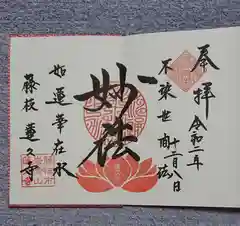 奉拝
令和二年
十二月八日
不染世間法
妙法
如蓮華在水
藤枝 蓮久寺